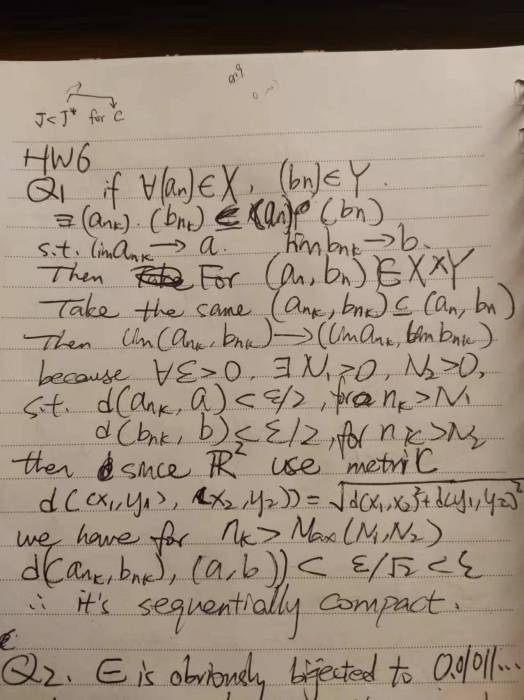 J < J* for C
HW6
Q1 if ∀(an) ∈ X, (bn) ∈ Y.
∃ (ank). (bnk) ⊆ (an), (bn)
s.t. lim ank → a. lim bnk → b.
Then For (an, bn) ∈ X × Y
Take the same (ank, bnk) ⊆ (an, bn)
Then lim (ank, bnk) → (lim ank, lim bnk)
because ∀ε > 0, ∃ N1 > 0, N2 > 0,
s.t. d(ank, a) < ε/2, for nk > N1
d(bnk, b) < ε/2, for nk > N2
then since ℝ² use metric
d((x1, y1), (x2, y2)) = √d(x1, x2)² + d(y1, y2)²
we have for nk > Max(N1, N2)
d(ank, bnk), (a, b)) < ε/√2 < ε
∴ it's sequentially compact.
Q2. E is obviously bijected to 0.01011...